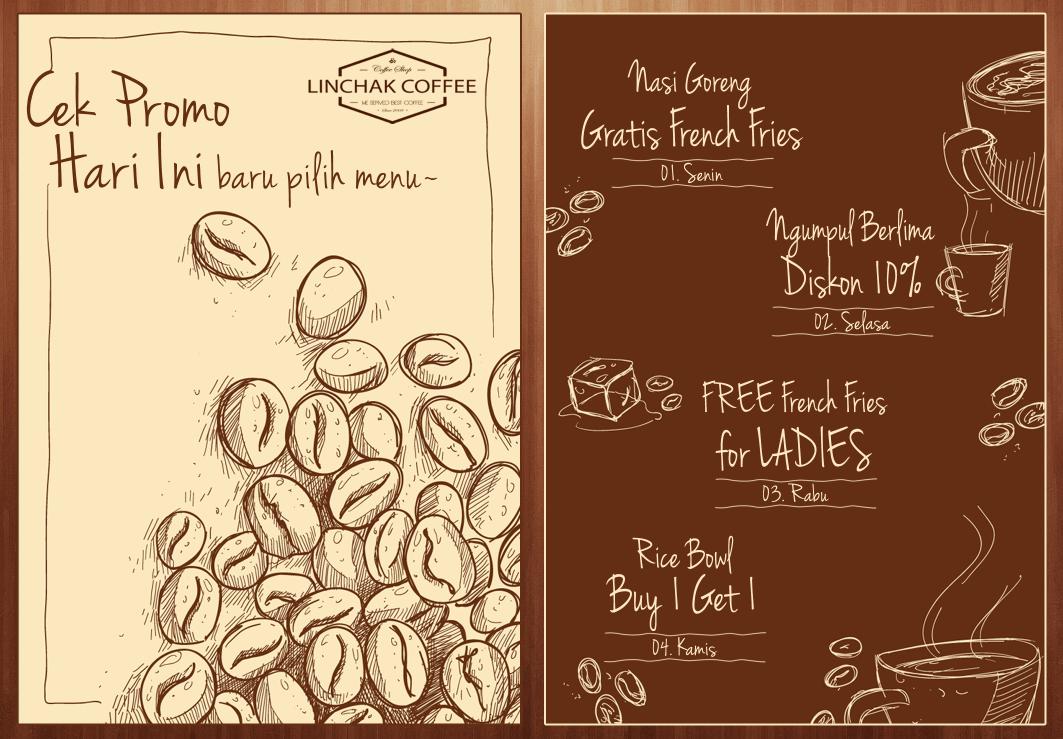 Cek Promo
Hari Ini baru pilih menu~
Coffee Shop
LINCHAK COFFEE
WE SERVED BEST COFFEE
Nasi Goreng
Gratis French Fries
01. Senin
Ngumpul Berlima
Diskon 10%
02. Selasa
FREE French Fries
for LADIES
03. Rabu
Rice Bowl
Buy 1 Get 1
04. Kamis